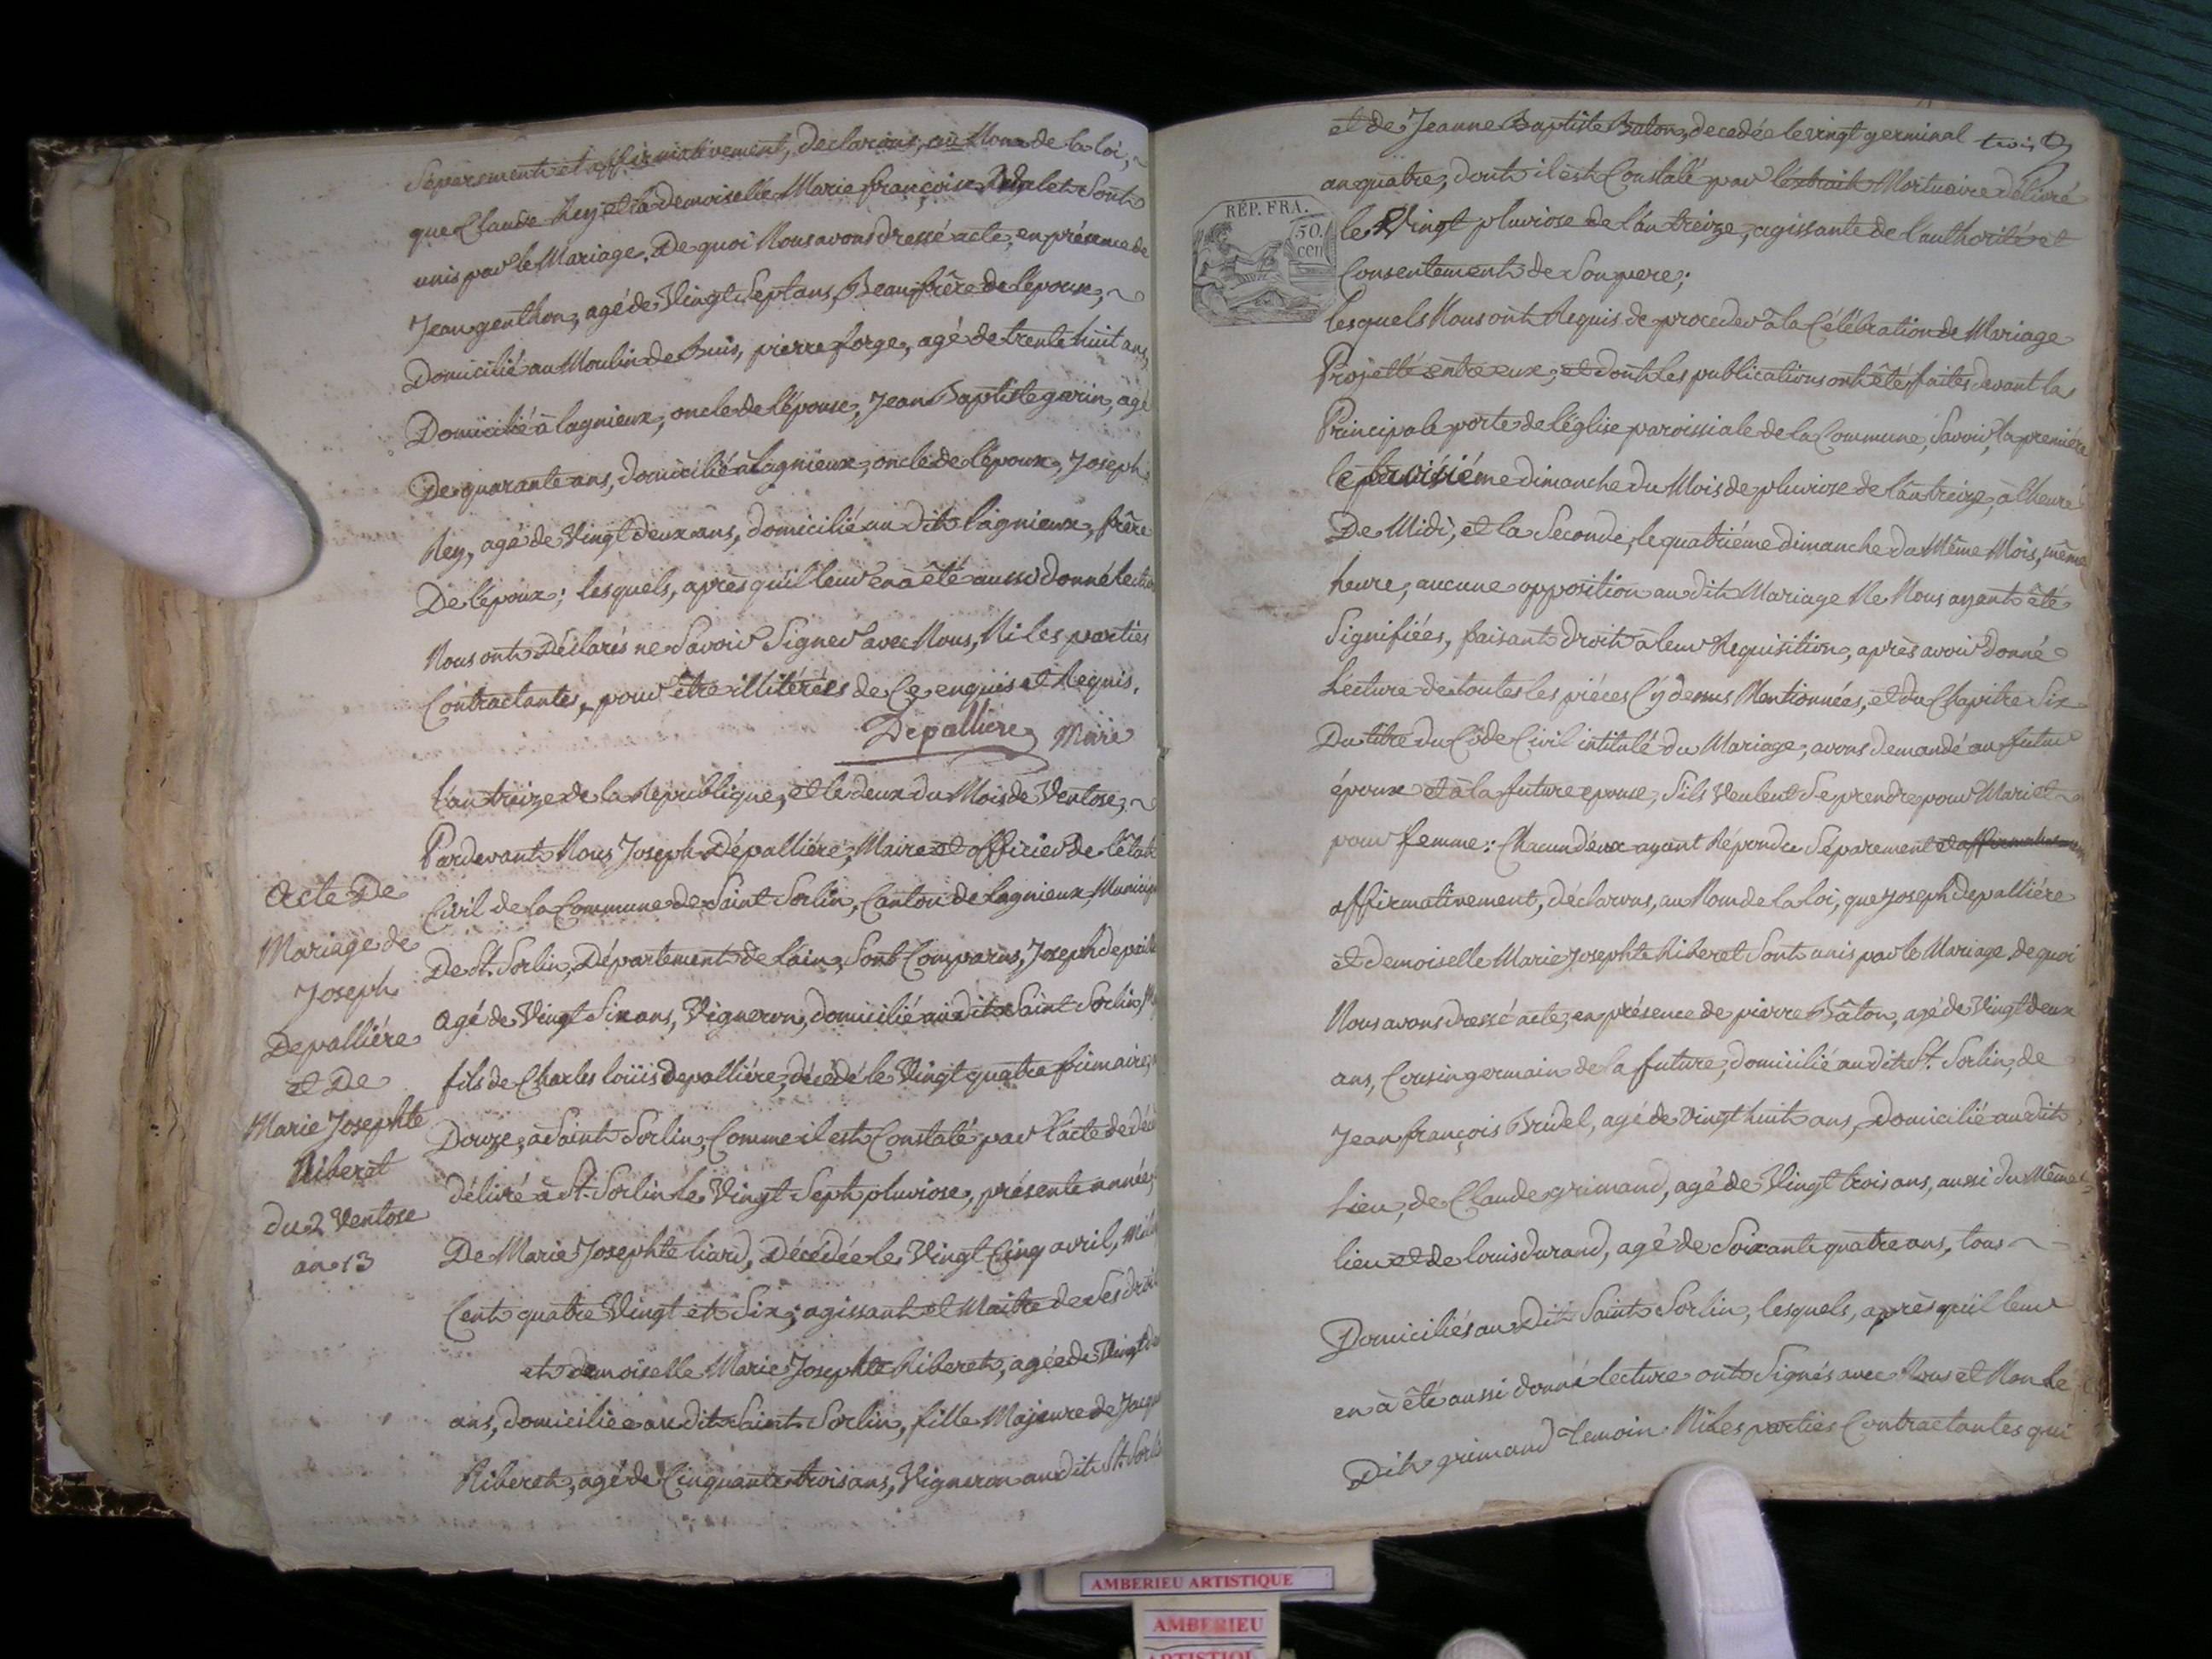 Séparement et affirmativement, declarons, au Nom de la loi,
que Claude Rey et la demoiselle Marie françoise Sont
unis par le Mariage. De quoi Nous avons dressé acte, en présence de
Jean genthon, agé de Vingt Sept ans, Beaufrêre de l'époux,
Domicilié au Moulin de Buis, pierre forge, agé de trente huit ans,
Domicilié à lagnieux, oncle de l'épouse, Jean Baptiste garin, agé
De quarante ans, domicilié à lagnieux, oncle de l'époux, Joseph
Rey, agé de Vingt deux ans, domicilié au dit lagnieux, frêre
De l'époux; lesquels, après qu'il leur en à été aussi donné lectu
Nous ont Déclarés ne Savoir Signer avec Nous, Ni les parties
Contractantes, pour être illitérées de Ce enquis et Requis.
Depalliere Maire
Acte De
Mariage de
Joseph
Depalliére
et De
Marie Josephte
Riberet
du 2 Ventose
an 13
L'an treize de la Republique, et le deux du Mois de Ventose,
Pardevant Nous Joseph Dépalliére, Maire et officier de l'état
Civil de la Commune de Saint Sorlin, Canton de lagnieux, Municip
De St. Sorlin, Département de l'ain, Sont Comparus, Joseph depalli
Agé de Vingt Six ans, Vigneron, domicilié au dit Saint Sorlin,
fils de Charles loüis depalliére, décédé le Vingt quatre frimaire,
Douze, a Saint Sorlin, Comme il est Constaté par l'acte de déc
délivré à St. Sorlin le Vingt Sept pluviose, présente année,
De Marie Josephte liard, Décédée le Vingt Cinq avril, Mil
Cent quatre Vingt et Six; agissant et Maitre de Ses droi
et demoiselle Marie Josephte Riberet, agée de Vingt
ans, domiciliée au dit Saint Sorlin, fille Majeure de Jacq
Riberet, agé de Cinquante trois ans, Vigneron au dit St. Sorli
RÉP. FRA.
50.
cen
et de Jeanne Baptiste Baton, decedée le vingt germinal trois
an quatre, dont il est Constaté par l'extrait Mortuaire délivré
le Vingt pluviose de l'an treize, agissante de l'authorité et
Consentement de Son pere;
lesquels Nous ont Requis de proceder à la Célébration de Mariage
Projetté entre eux, et dont les publications ont étés faites devant la
Principale porte de l'église paroissiale de la Commune, Savoir, la premiére
le troisiéme dimanche du Mois de pluviose de l'an treize, à l'heure
De Midi, et la Seconde, le quatriéme dimanche du Même Mois, même
heure, aucune opposition au dit Mariage Ne Nous ayant été
Signifiées, faisant droit à leur Requisition, après avoir donné
Lecture de toutes les piéces Cy dessus Mentionnées, et du Chapitre Six
Du titre du Côde Civil intitulé du Mariage, avons demandé au futur
époux et à la future epouse, S'ils Veulent Se prendre pour Mari et
pour femme: Chacun d'eux ayant Répondu Séparement et affirmativement
affirmativement, déclarons, au Nom de la loi, que Joseph depalliére
et demoiselle Marie Josephte Riberet Sont unis par le Mariage. de quoi
Nous avons dressé acte, en présence de pierre Bâton, agé de Vingt deux
ans, Cousin germain de la future, domicilié au dit St. Sorlin, de
Jean françois Bridel, agé de Vingt huit ans, Domicilié au dit
Lieu, de Claude grimand, agé de Vingt trois ans, aussi du Même
lieu et de louis durand, agé de Soixante quatre ans, tous
Domiciliés au Dit Saint Sorlin, lesquels, après qu'il leur
en à été aussi donné lecture ont Signés avec Nous et Non le
Dit grimand Temoin Ni les parties Contractantes qui
AMBERIEU ARTISTIQUE
AMBERIEU
ARTISTIQU